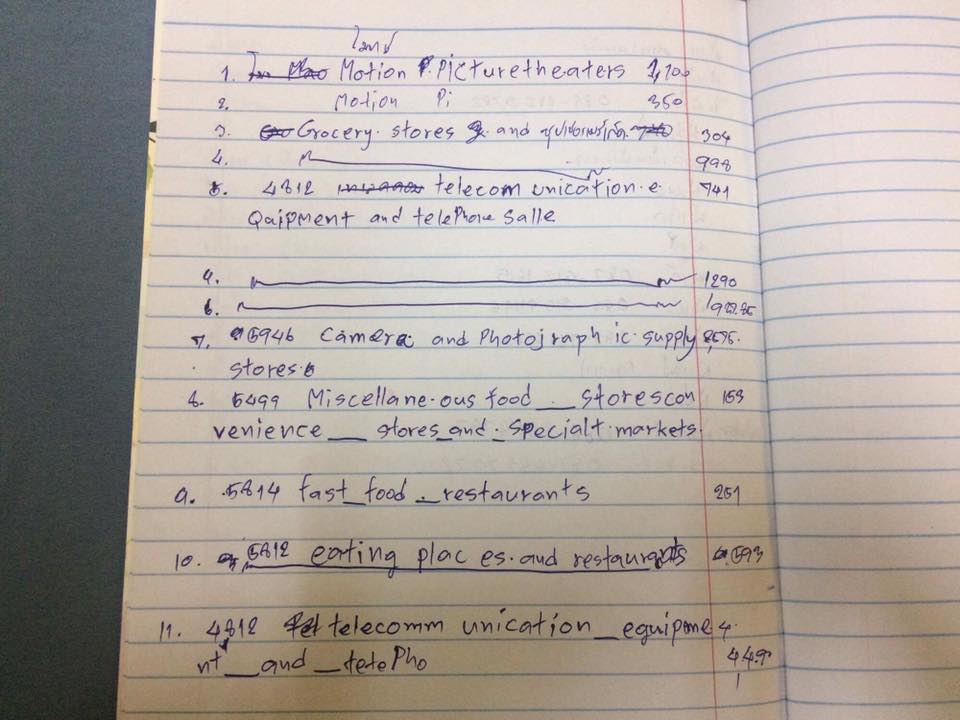 1. Motion Picturetheaters 1,700
2. Motion Pi 350
3. Grocery. stores and ซุปเปอร์มาร์เก็ต 304
4. 998
5. 4812 telecom unication.e. 741
Qaipment and telephone salle
9. 1290
6.
7. 5946 Camera and Photojraph ic.supply
stores.
8. 5499 Miscellane.ous food __ storescon 159
venience __ stores_and_.specialt.markets.
9. .5814 fast_food._restaurants 251
10. 5812 eating plac es.and restaurants 593
11. 4812 telecomm unication _equipme 4.
nt __and _telePho 449